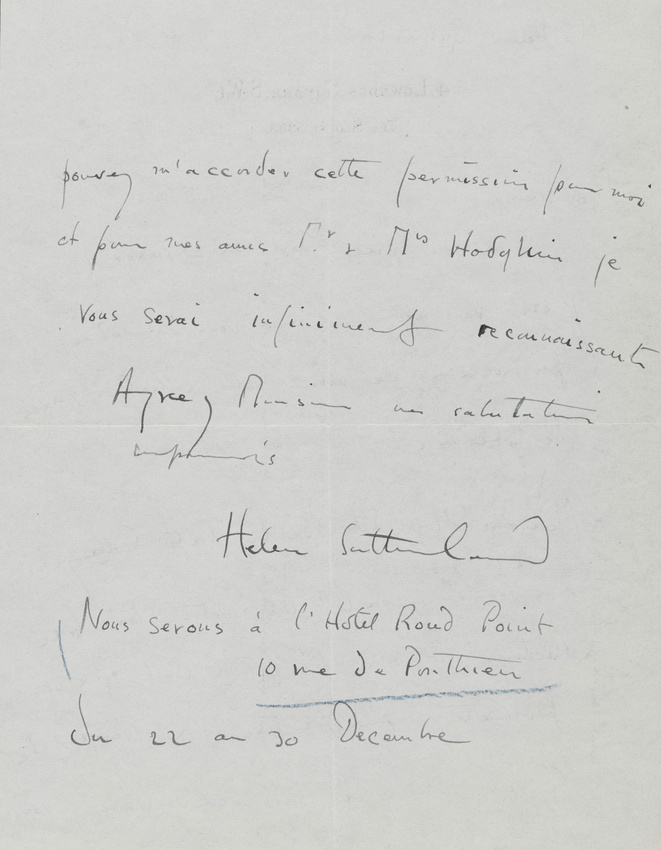 pouvez m'accorder cette permission pour moi
et pour mes amis Mr & Mrs Hodgkin je
vous serai infiniment reconnaissante
Agreez Monsieur mes salutations
empressés
Helen Sutherland
Nous serons à l'Hotel Rond Point
10 rue de Ponthieu
du 22 au 30 Decembre